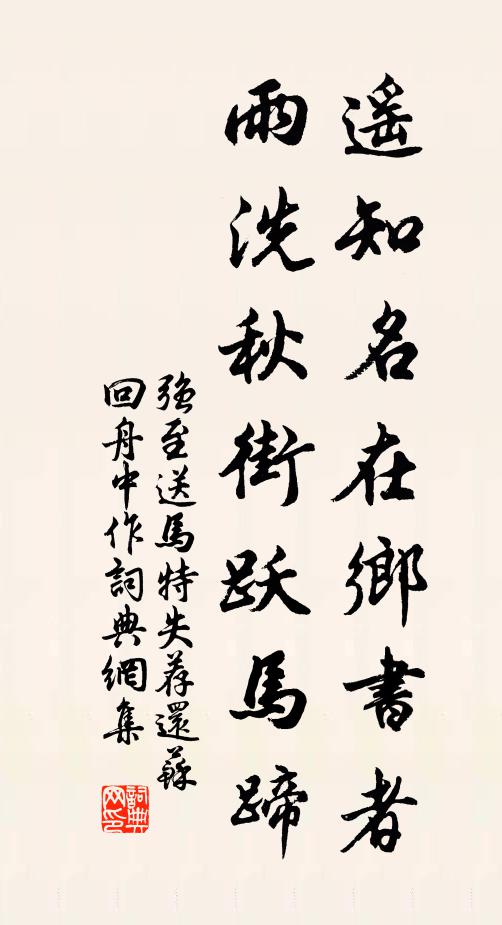 遥知名在鄉書者
雨洗秋街跃馬蹄
强至送馬特失荐還蘇
回舟中作詞典網集
詞典
网印